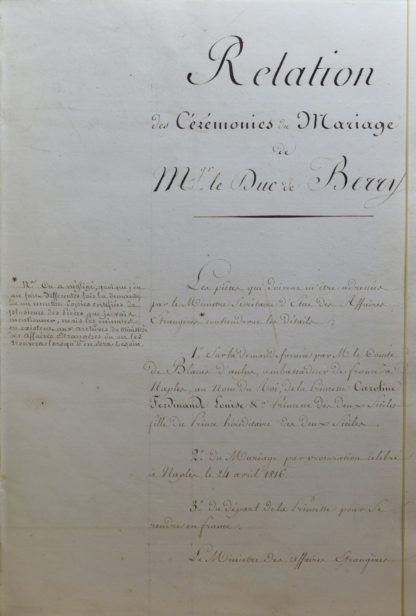 Relation
des Cérémonies du Mariage
de
Mgr le Duc de Berry
Nta. On a négligé, quoique j'en
aie fait différentes fois la demande,
de me remettre Copies certifiées de
plusieurs des pièces que je vais
mentionner, mais les minutes
en existent aux archives du ministère
des Affaires Etrangères où on les
trouvera lorsqu'il en sera besoin.
Les pièces qui doivent m'être adressées
par le Ministre Secrétaire d'Etat des Affaires
Etrangères contiendront les détails
1°. Sur la demande formée par M. le Comte
de Blacas d'aulps, ambassadeur de france à
Naples, au Nom du Roi, de la Princesse Caroline
Ferdinande Louise &a Princesse des Deux Siciles
fille du Prince héréditaire des Deux Siciles.
2°. du Mariage par procuration célébré
à Naples, le 24 avril 1816.
3°. du départ de la Princesse pour se
rendre en france.
Le Ministre des affaires Etrangères